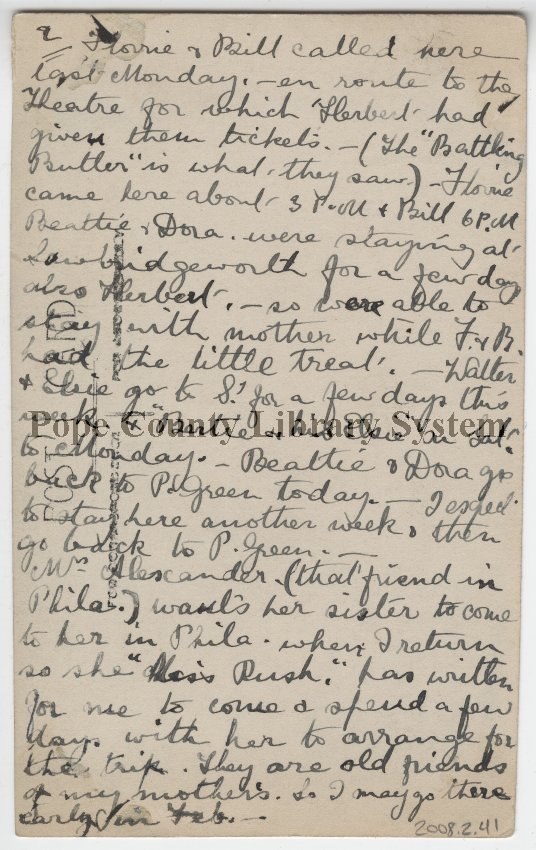 2 Florrie & Bill called here
last Monday. — en route to the
Theatre for which Herbert had
given them tickets. — (The "Battling
Butler" is what they saw) — Florrie
came here about 3 P.M & Bill 6 P.M
Beattie & Dora. were staying at
Sawbridgeworth for a few days
also Herbert. — so were able to
stay with mother while F. & B.
had the little treat. — Walter
& Elsie go to S. for a few days this
week & "Buttie" & his Elsie on Sat.
to Monday. — Beattie & Dora go
back to P. Green today. — I expect
to stay here another week & then
go back to P. Green. —
Mrs Alexander. (that friend in
Phila.) wants her sister to come
to her in Phila. when I return
so she "Miss Rush," has written
for me to come & spend a few
days with her to arrange for
the trip. They are old friends
of my mother's. So I may go there
early in Feb. —
POST CARD
Pope County Library System
2008.2.41